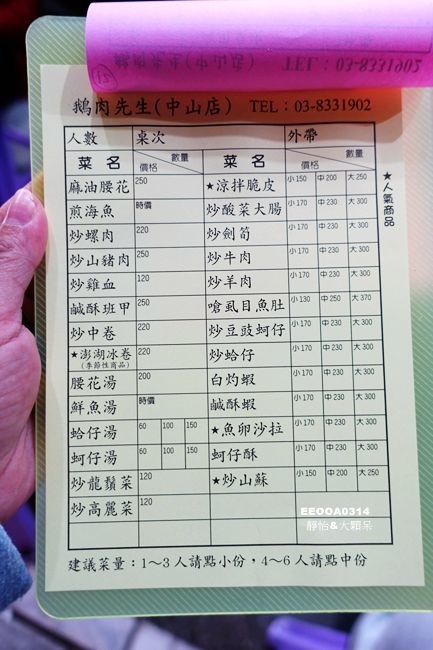 鵝肉先生(中山店) TEL：03-8331902
人數 桌次 外帶
菜名 價格 數量 菜名 價格 數量
麻油腰花 250 ★涼拌脆皮 小150 中200 大250
煎海魚 時價 炒酸菜大腸 小170 中230 大300
炒螺肉 220 炒劍筍 小170 中230 大300
炒山豬肉 250 炒牛肉 小170 中230 大300
炒雞血 120 炒羊肉 小170 中230 大300
鹹酥班甲 250 嗆虱目魚肚 小130 中250 大370
炒中卷 220 炒豆豉蚵仔 小170 中230 大300
★澎湖冰卷 220 炒蛤仔 小170 中230 大300
(季節性商品)
腰花湯 200 白灼蝦 小170 中230 大300
鮮魚湯 時價 鹹酥蝦 小170 中230 大300
蛤仔湯 60 100 150 ★魚卵沙拉 小170 中230 大300
蚵仔湯 60 100 150 蚵仔酥 小170 中230 大300
炒龍鬚菜 120 ★炒山蘇 小150 中200 大250
炒高麗菜 120
★人氣商品
建議菜量：1～3人請點小份，4～6人請點中份
EEOOA0314
靜怡&大顆呆